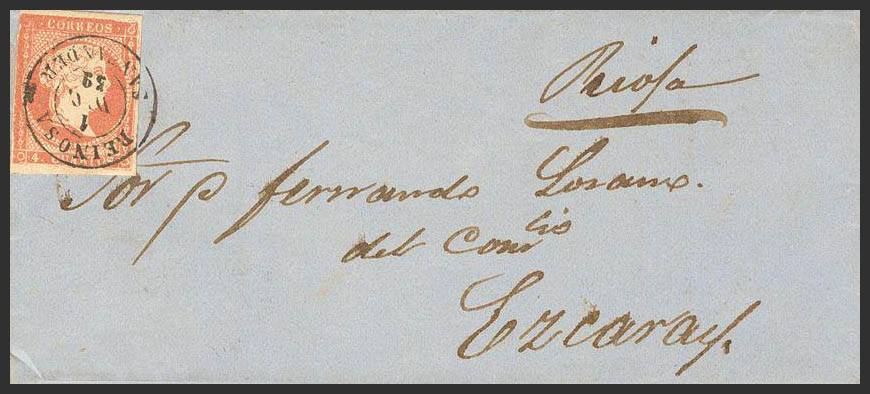 CORREOS
REINOSA
SANTANDER
1
DC
59
4
Rioja
Sor D fernando Losano.
del Comlio
Ezcaray.